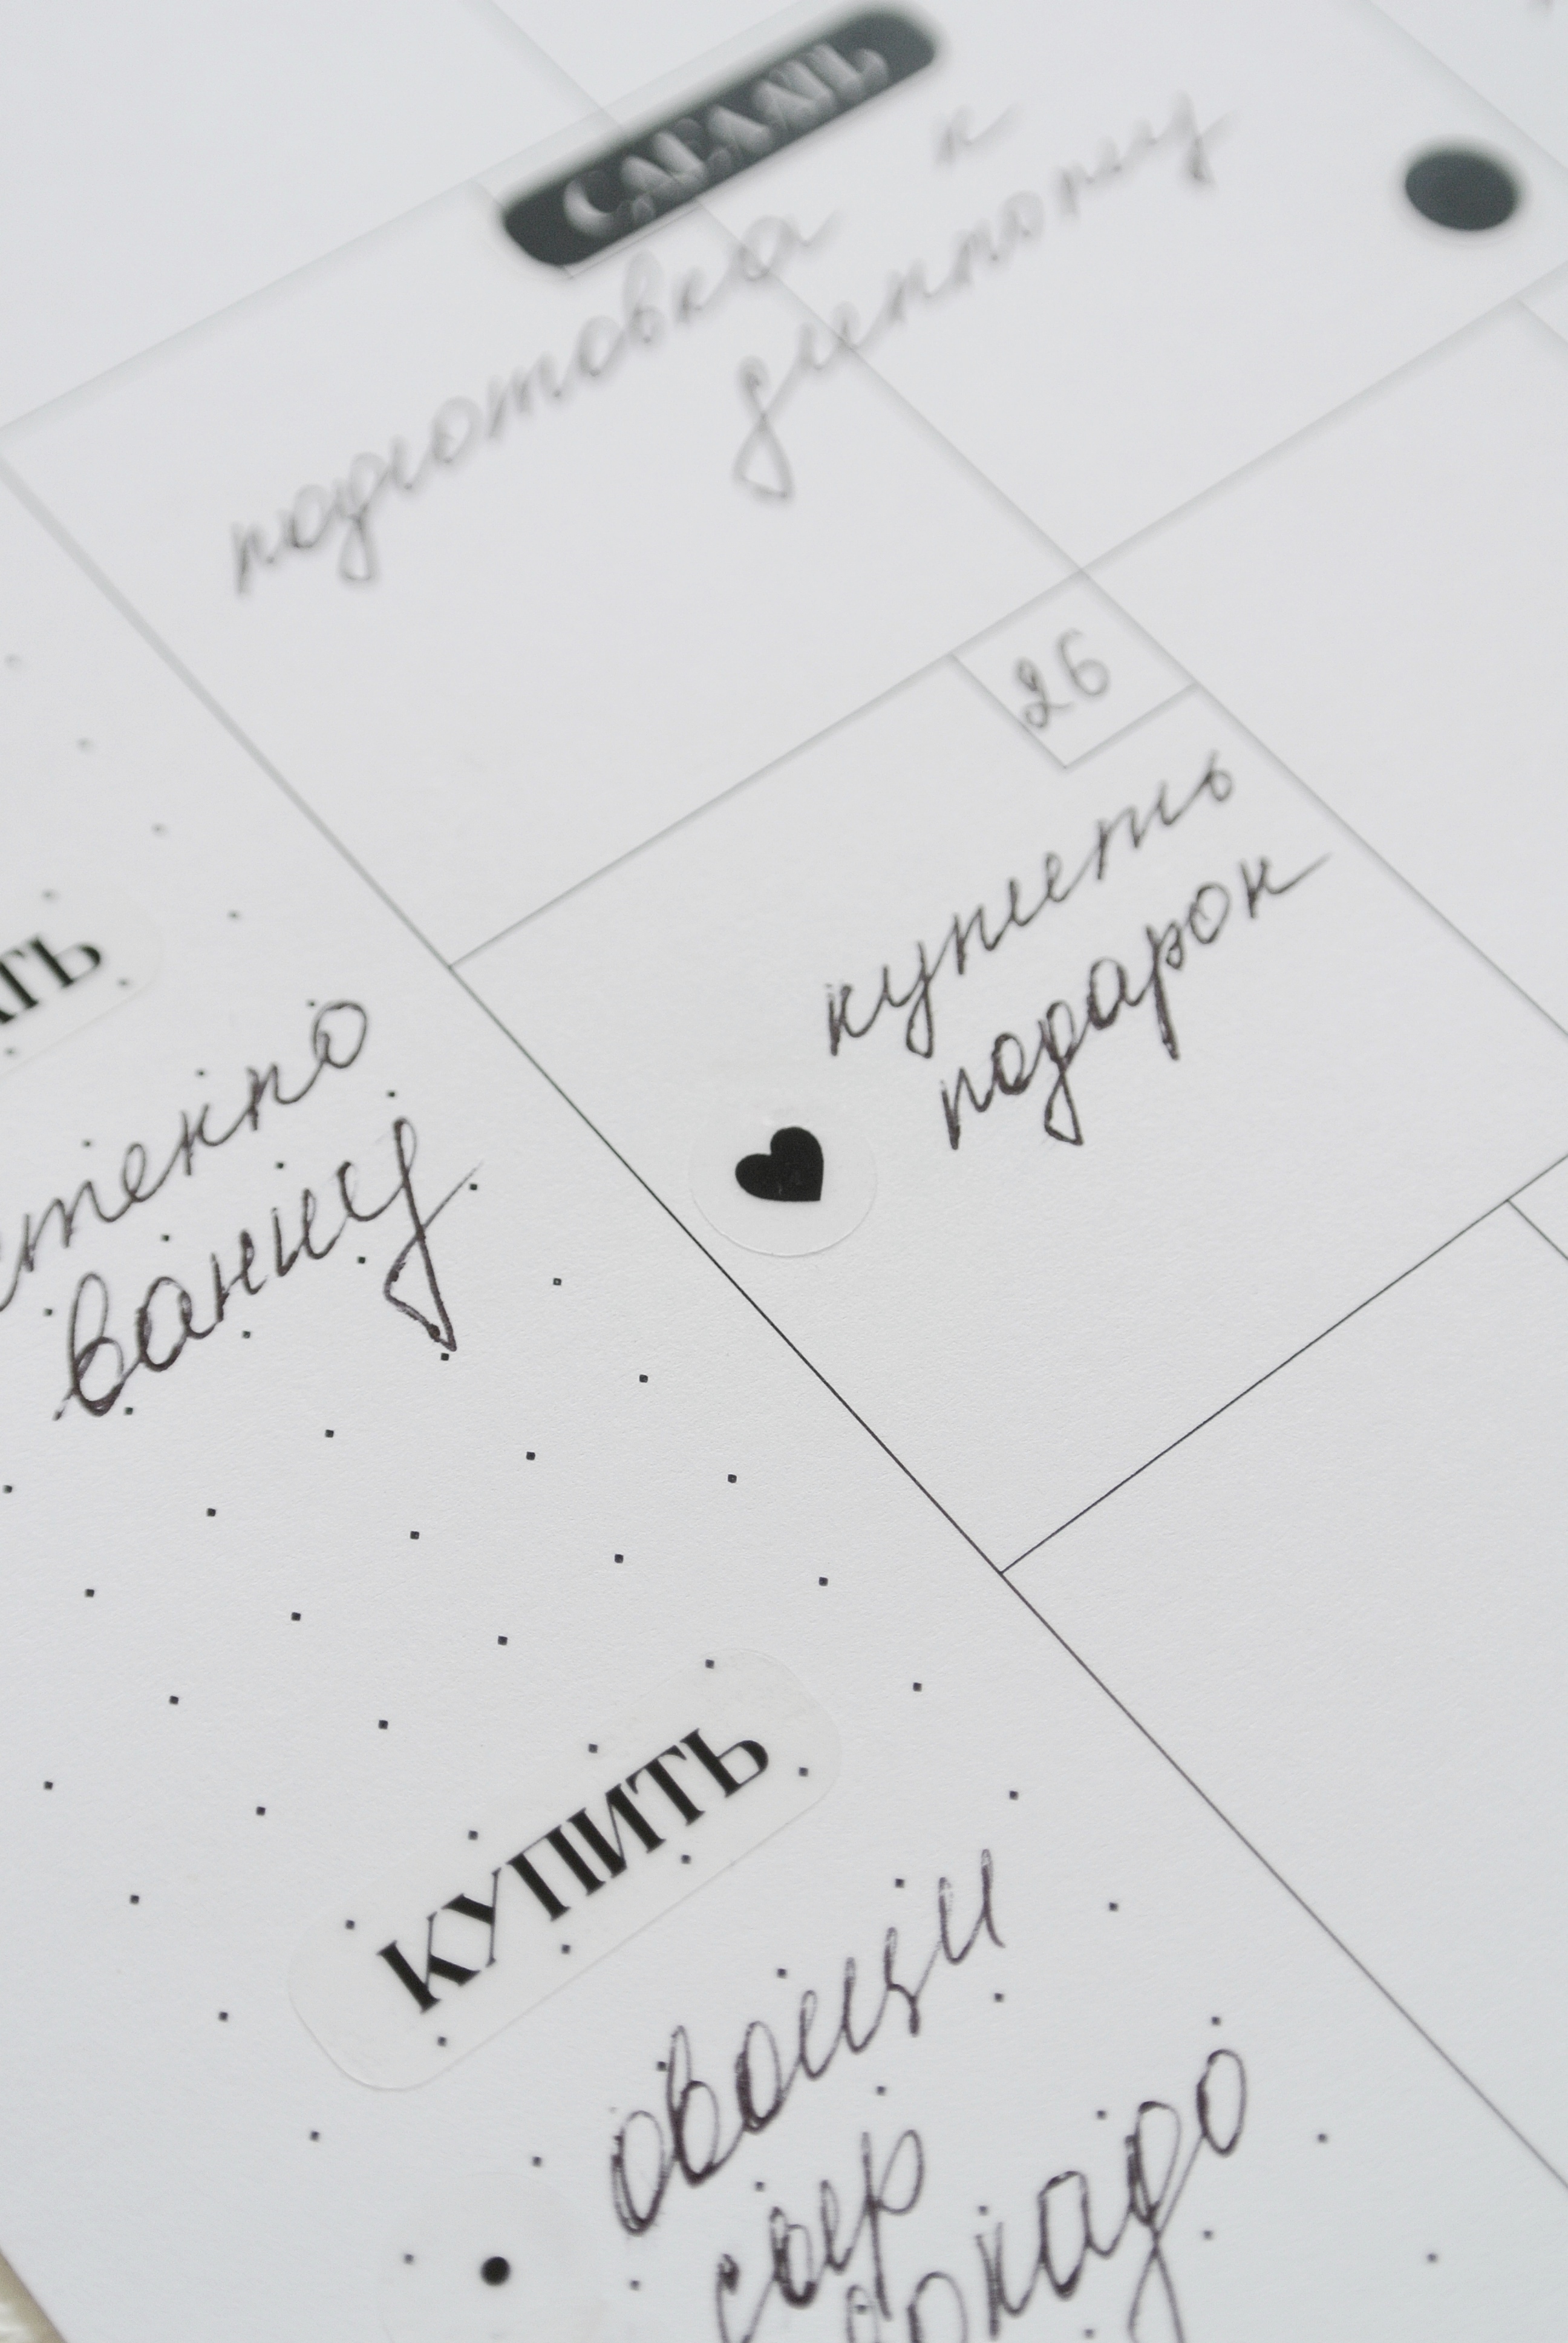 СДЕЛАТЬ
подготовка к
диплому
26
купить
подарок
АТЬ
стекло
ванну
КУПИТЬ
овощи
сыр